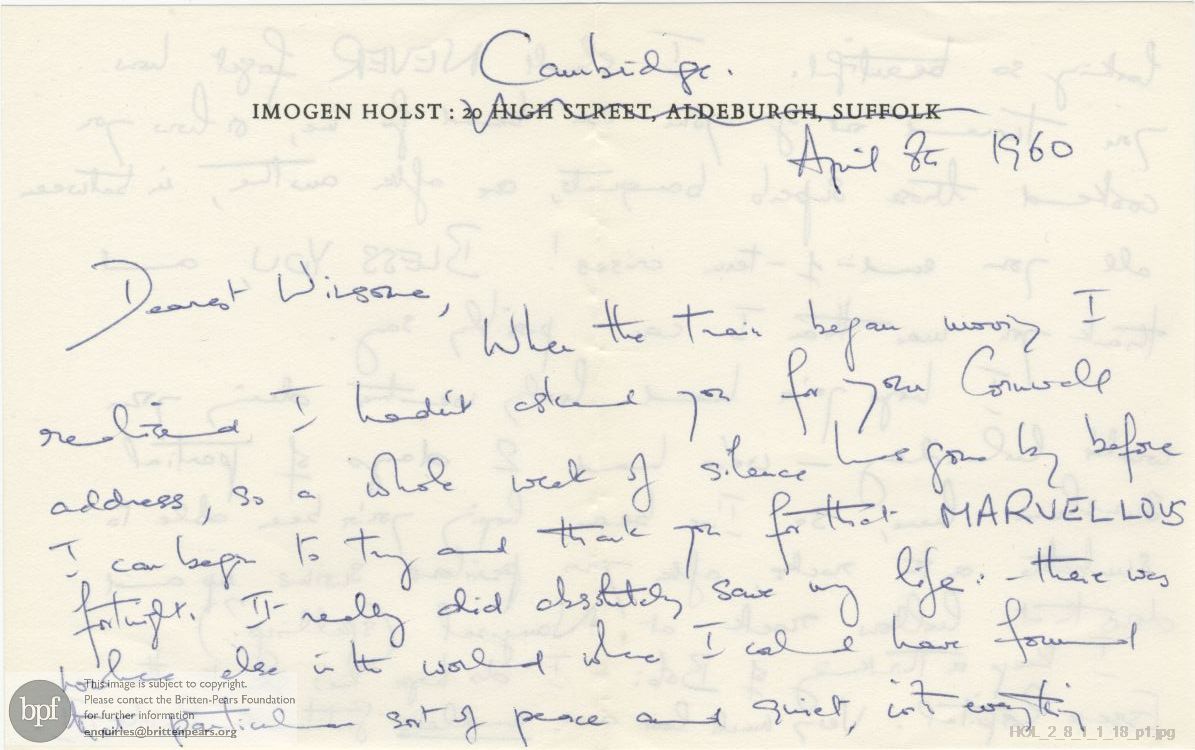 Cambridge.
IMOGEN HOLST : 20 HIGH STREET, ALDEBURGH, SUFFOLK
April 8th 1960
Dearest Winsome,
When the train began moving I
realised I hadn't asked you for your Cornwall
address, so a whole week of silence has gone by before
I can begin to try and thank you for that MARVELLOUS
fortnight. It really did absolutely save my life: - there was
nowhere else in the world where I could have found
that particular sort of peace and quiet, with everything
This image is subject to copyright.
Please contact the Britten-Pears Foundation
for further information
enquiries@brittenpears.org
bpf
HOL_2_8_1_1_18_p1.jpg